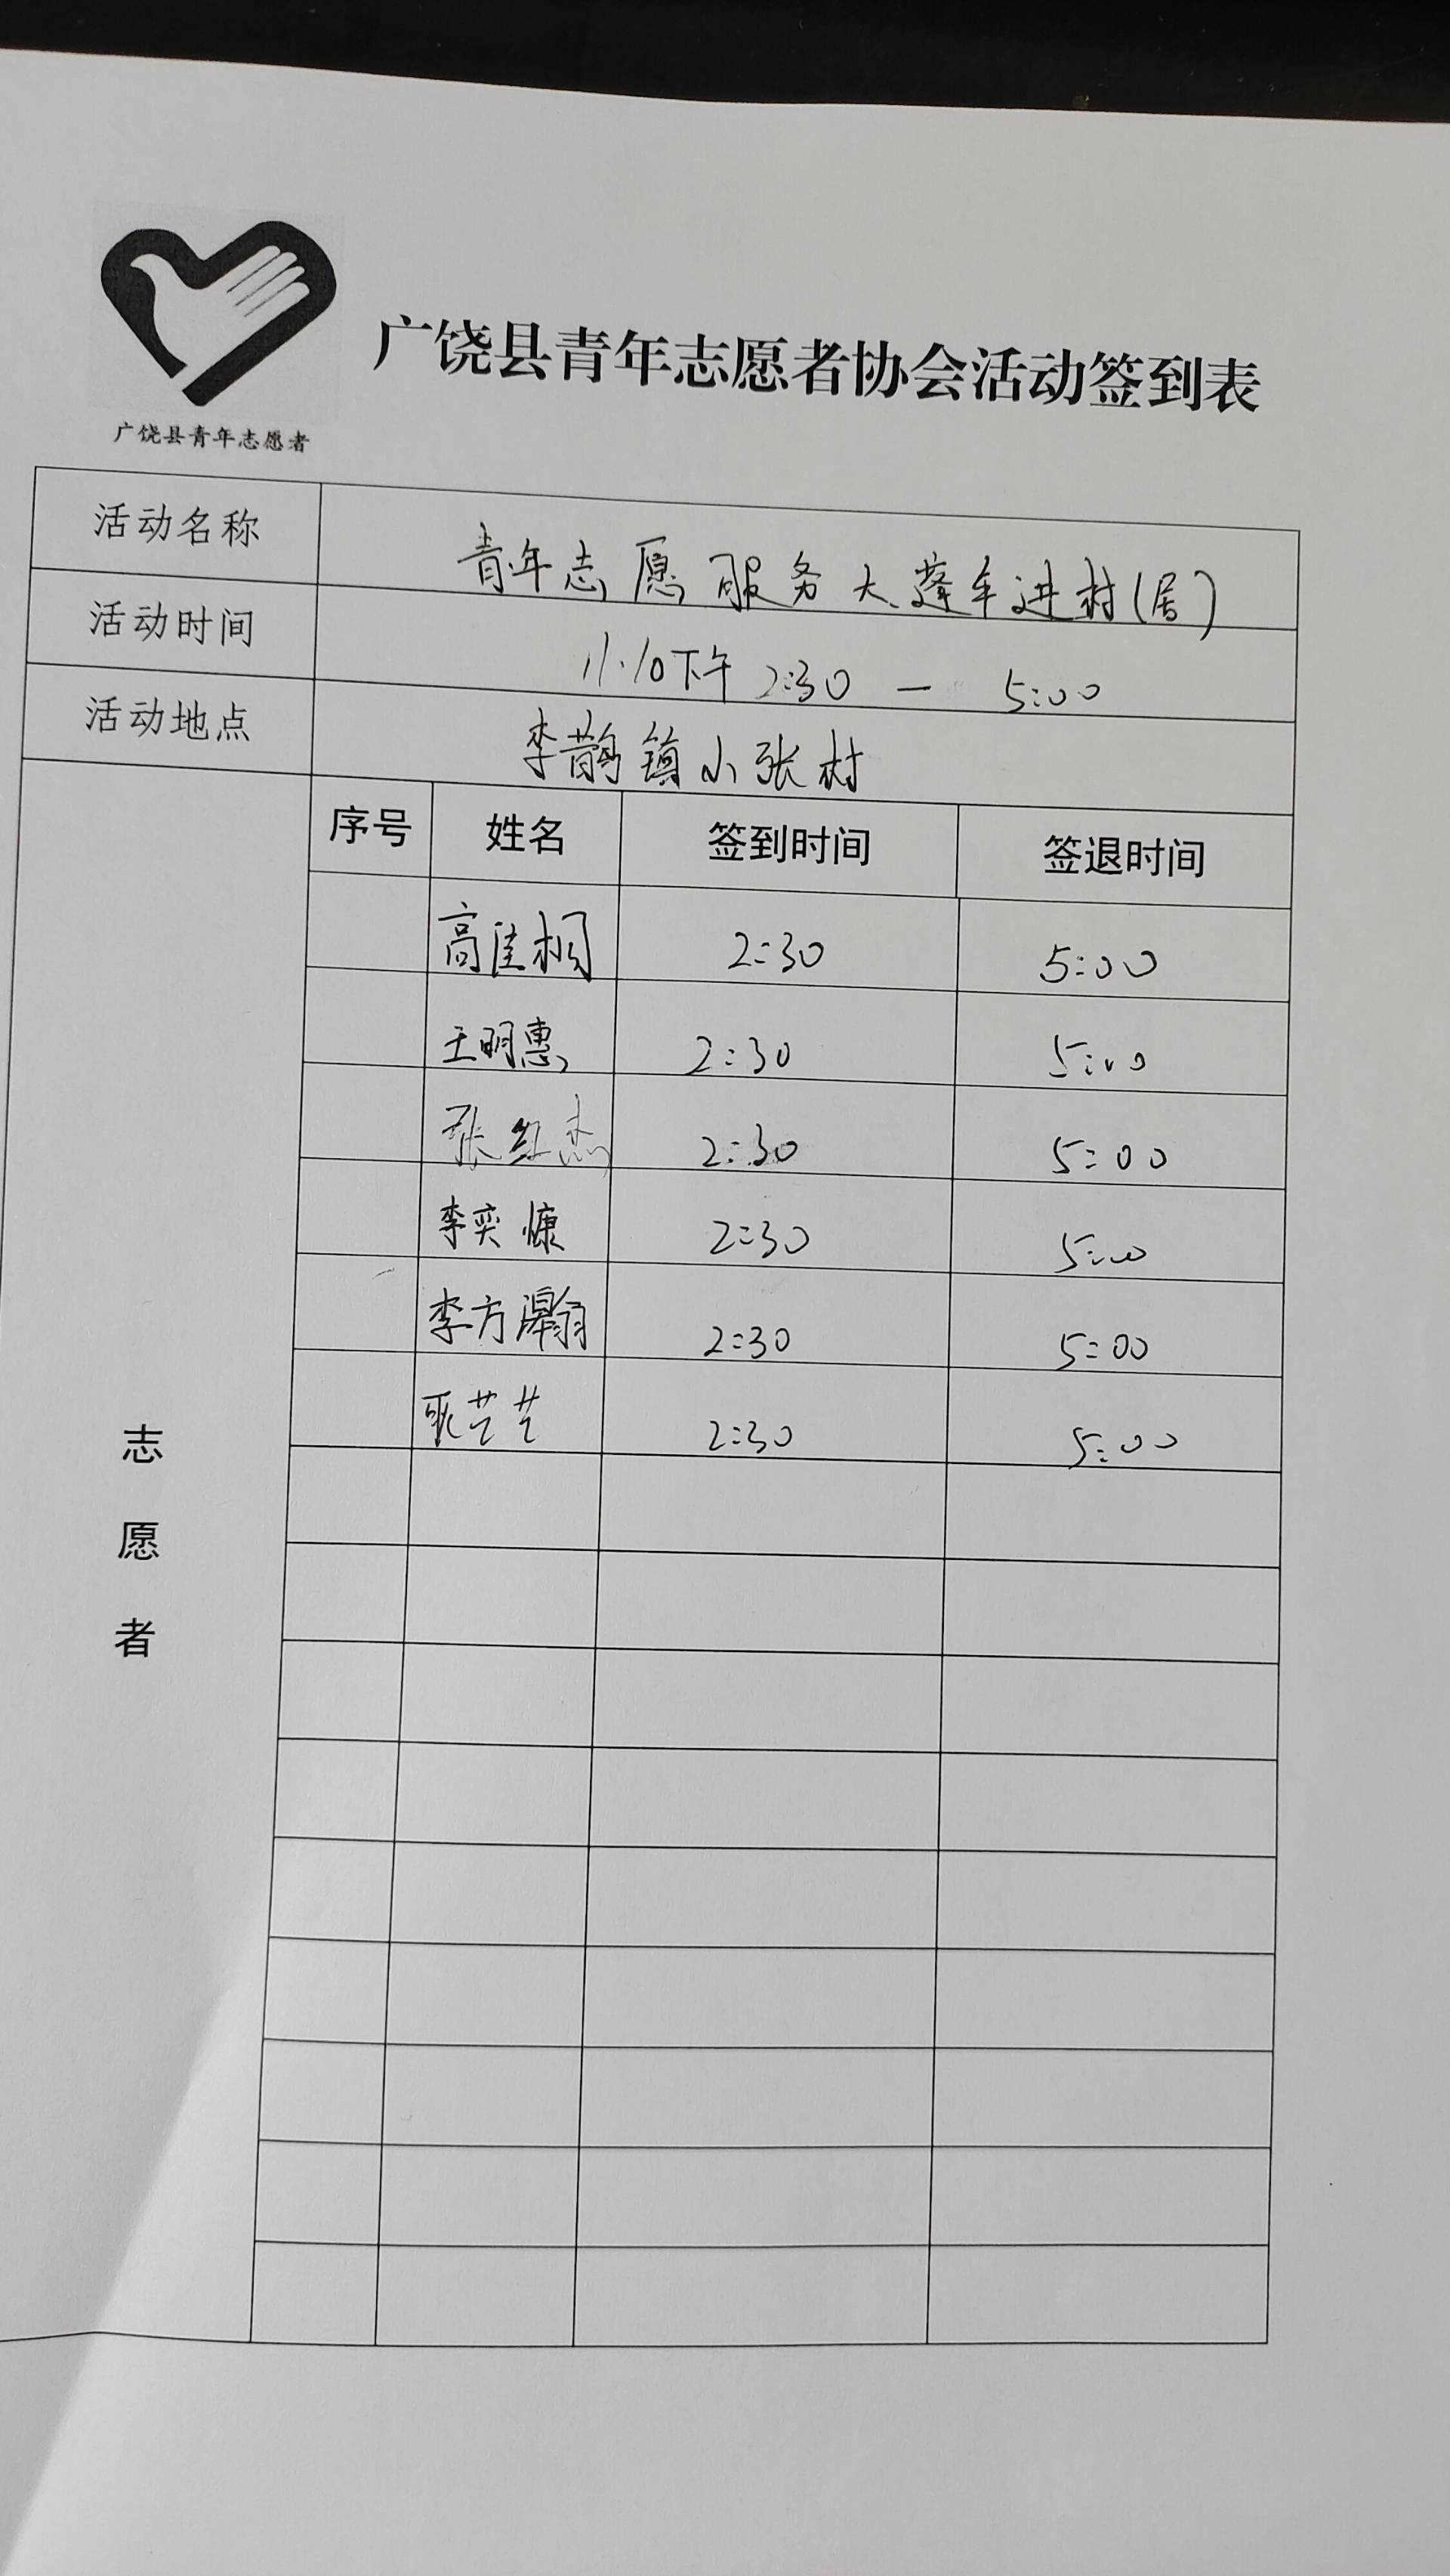 广饶县青年志愿者协会活动签到表
广饶县青年志愿者
活动名称 青年志愿服务大蓬车进村(居)
活动时间 11.10下午 2:30 — 5:00
活动地点 李鹊镇小张村
志愿者
序号 姓名 签到时间 签退时间
高佳桐 2:30 5:00
王明惠 2:30 5:00
张红杰 2:30 5:00
李奕慷 2:30 5:00
李方瀚 2:30 5:00
耿艺艺 2:30 5:00